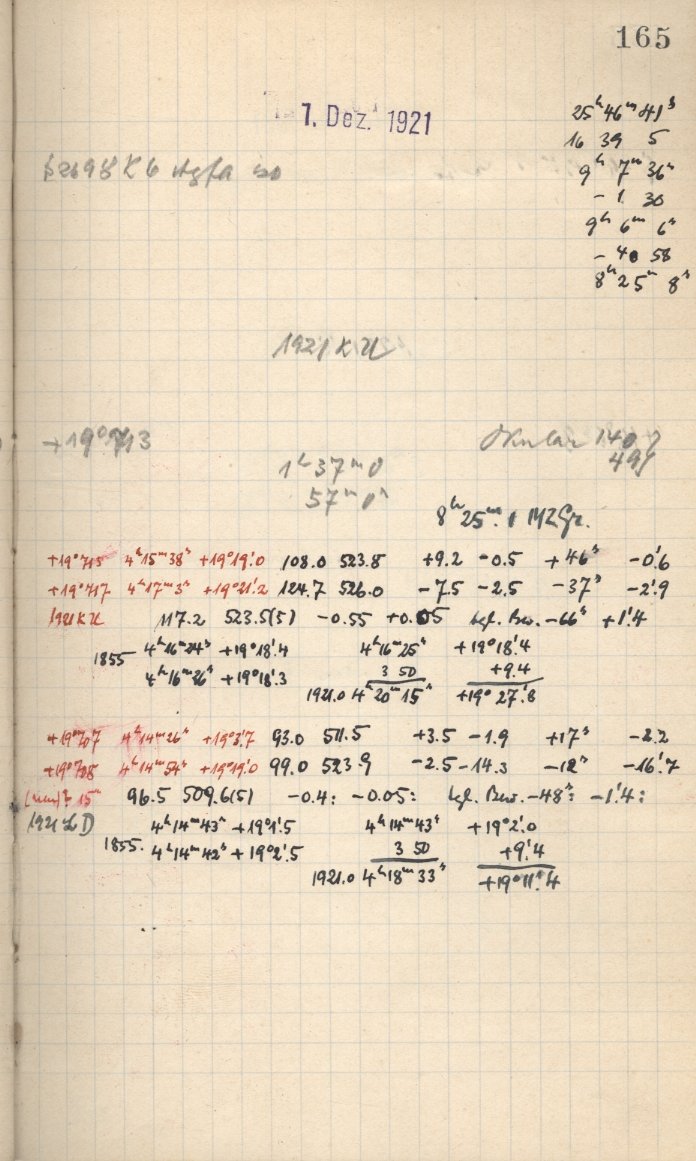 165
25ʰ 46ᵐ 41ˢ
1. Dez. 1921
16 39 5
9ʰ 7ᵐ 36ˢ
B2698 K6 Agfa iso
- 1 30
9ʰ 6ᵐ 6ˢ
- 40 58
8ʰ 25ᵐ 8ˢ
1921 KU
+19°713
Okular 140
491
1ʰ 37ᵐ 0
57ᵐ 0ˢ
8ʰ 25ᵐ.1 MZGr.
+19°713 4ʰ15ᵐ38ˢ +19°19'.0 108.0 523.8 +9.2 -0.5 +46ˢ -0'.6
+19°717 4ʰ17ᵐ3ˢ +19°21'.2 124.7 526.0 -7.5 -2.5 -37ˢ -2'.9
1921 KU 117.2 523.5(5) -0.55 +0.05 tgl. Bew. -66ˢ +1'.4
1855 4ʰ16ᵐ24ˢ +19°18'.4 4ʰ16ᵐ25ˢ +19°18'.4
4ʰ16ᵐ26ˢ +19°18'.3 3 50 +9.4
1921.0 4ʰ20ᵐ15ˢ +19°27'.8
+19°707 4ʰ14ᵐ26ˢ +19°3'.7 93.0 511.5 +3.5 -1.9 +17ˢ -2.2
+19°708 4ʰ14ᵐ54ˢ +19°19'.0 99.0 523.9 -2.5 -14.3 -12ˢ -16'.7
15ᵐ 96.5 509.6(5) -0.4: -0.05: tgl. Bew. -48ˢ: -1'.4:
1921 LD 4ʰ14ᵐ43ˢ +19°1'.5 4ʰ14ᵐ43ˢ +19°2'.0
1855. 4ʰ14ᵐ42ˢ +19°2'.5 3 50 +9'.4
1921.0 4ʰ18ᵐ33ˢ +19°11'.4